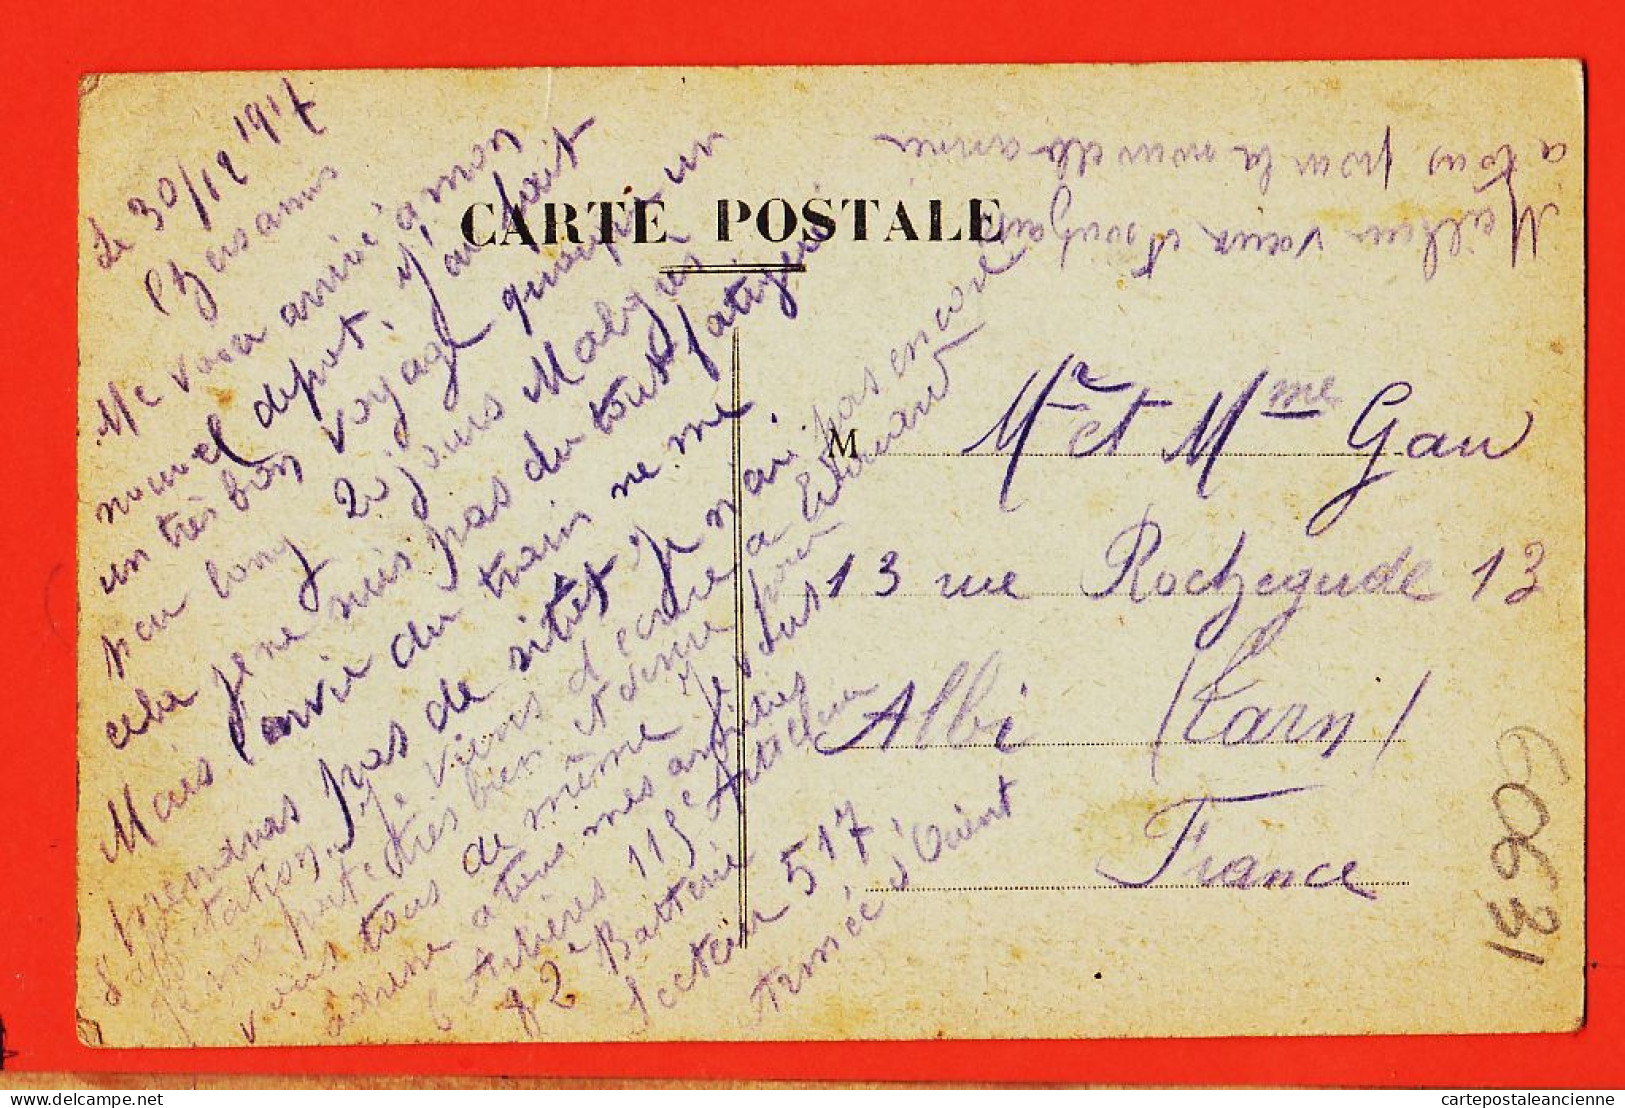 Le 30/12 1917
Chers amis
Me voici arrivé à mon
nouvel depot. j'ai fait
un très bon voyage quoique un
peu long 20 jours Malgré
cela je ne suis pas du tout fatigué
Mais l'envie du train ne me
prendras pas de sitôt je n'ai pas encore
d'affectation. Je viens d'ecrire a Edouard
Je me porte très bien et désire pour
vous tous de même je suis
a tous mes amitiés
115e Artillerie
82e Batterie
Secteur 517
Armée d'Orient
Meilleur vœux et souhaits
a tous pour la nouvelle année
CARTE POSTALE
M
Mr et Mme Gau
13 rue Rochegude 13
Albi (Tarn)
France
1390
cartepostaleancienne